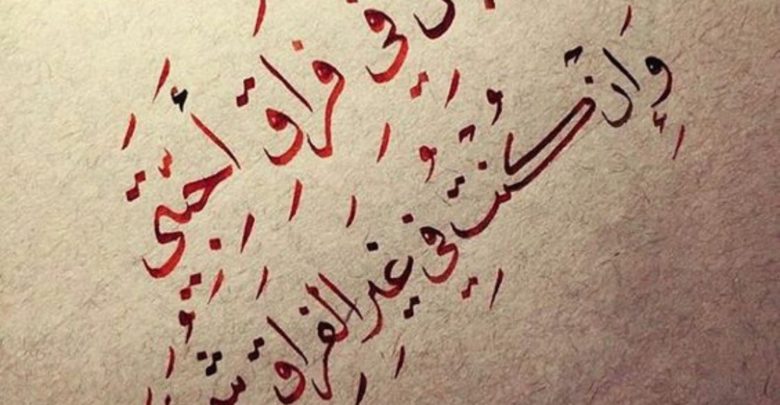 في فراق أحبتي
وَإن كُنتُ في غيرِ الفراقِ